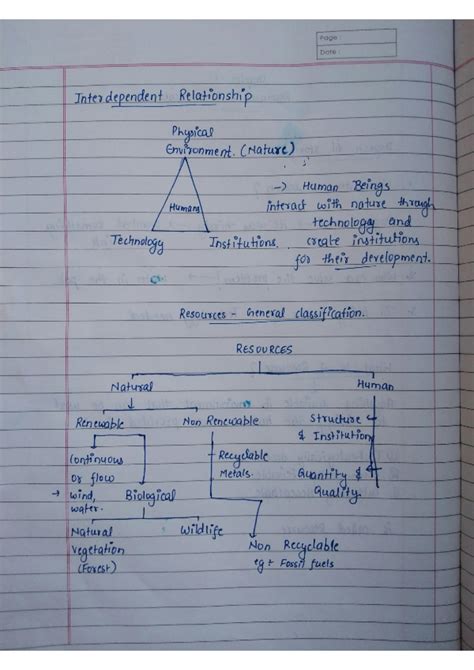 Page :
Date :
Interdependent Relationship
Physical
Environment. (Nature)
Humans
Technology
Institutions.
-> Human Beings
interact with nature through
technology and
create institutions
for their development.
Resources - General classification.
RESOURCES
Natural
Human
Renewable
Non Renewable
Structure
& Institution
Continuous
or flow
→ wind,
water.
Biological
Recyclable
Metals.
Quantity &
Quality.
Natural
Vegetation
(Forest)
Wildlife
Non Recyclable
eg + Fossil fuels